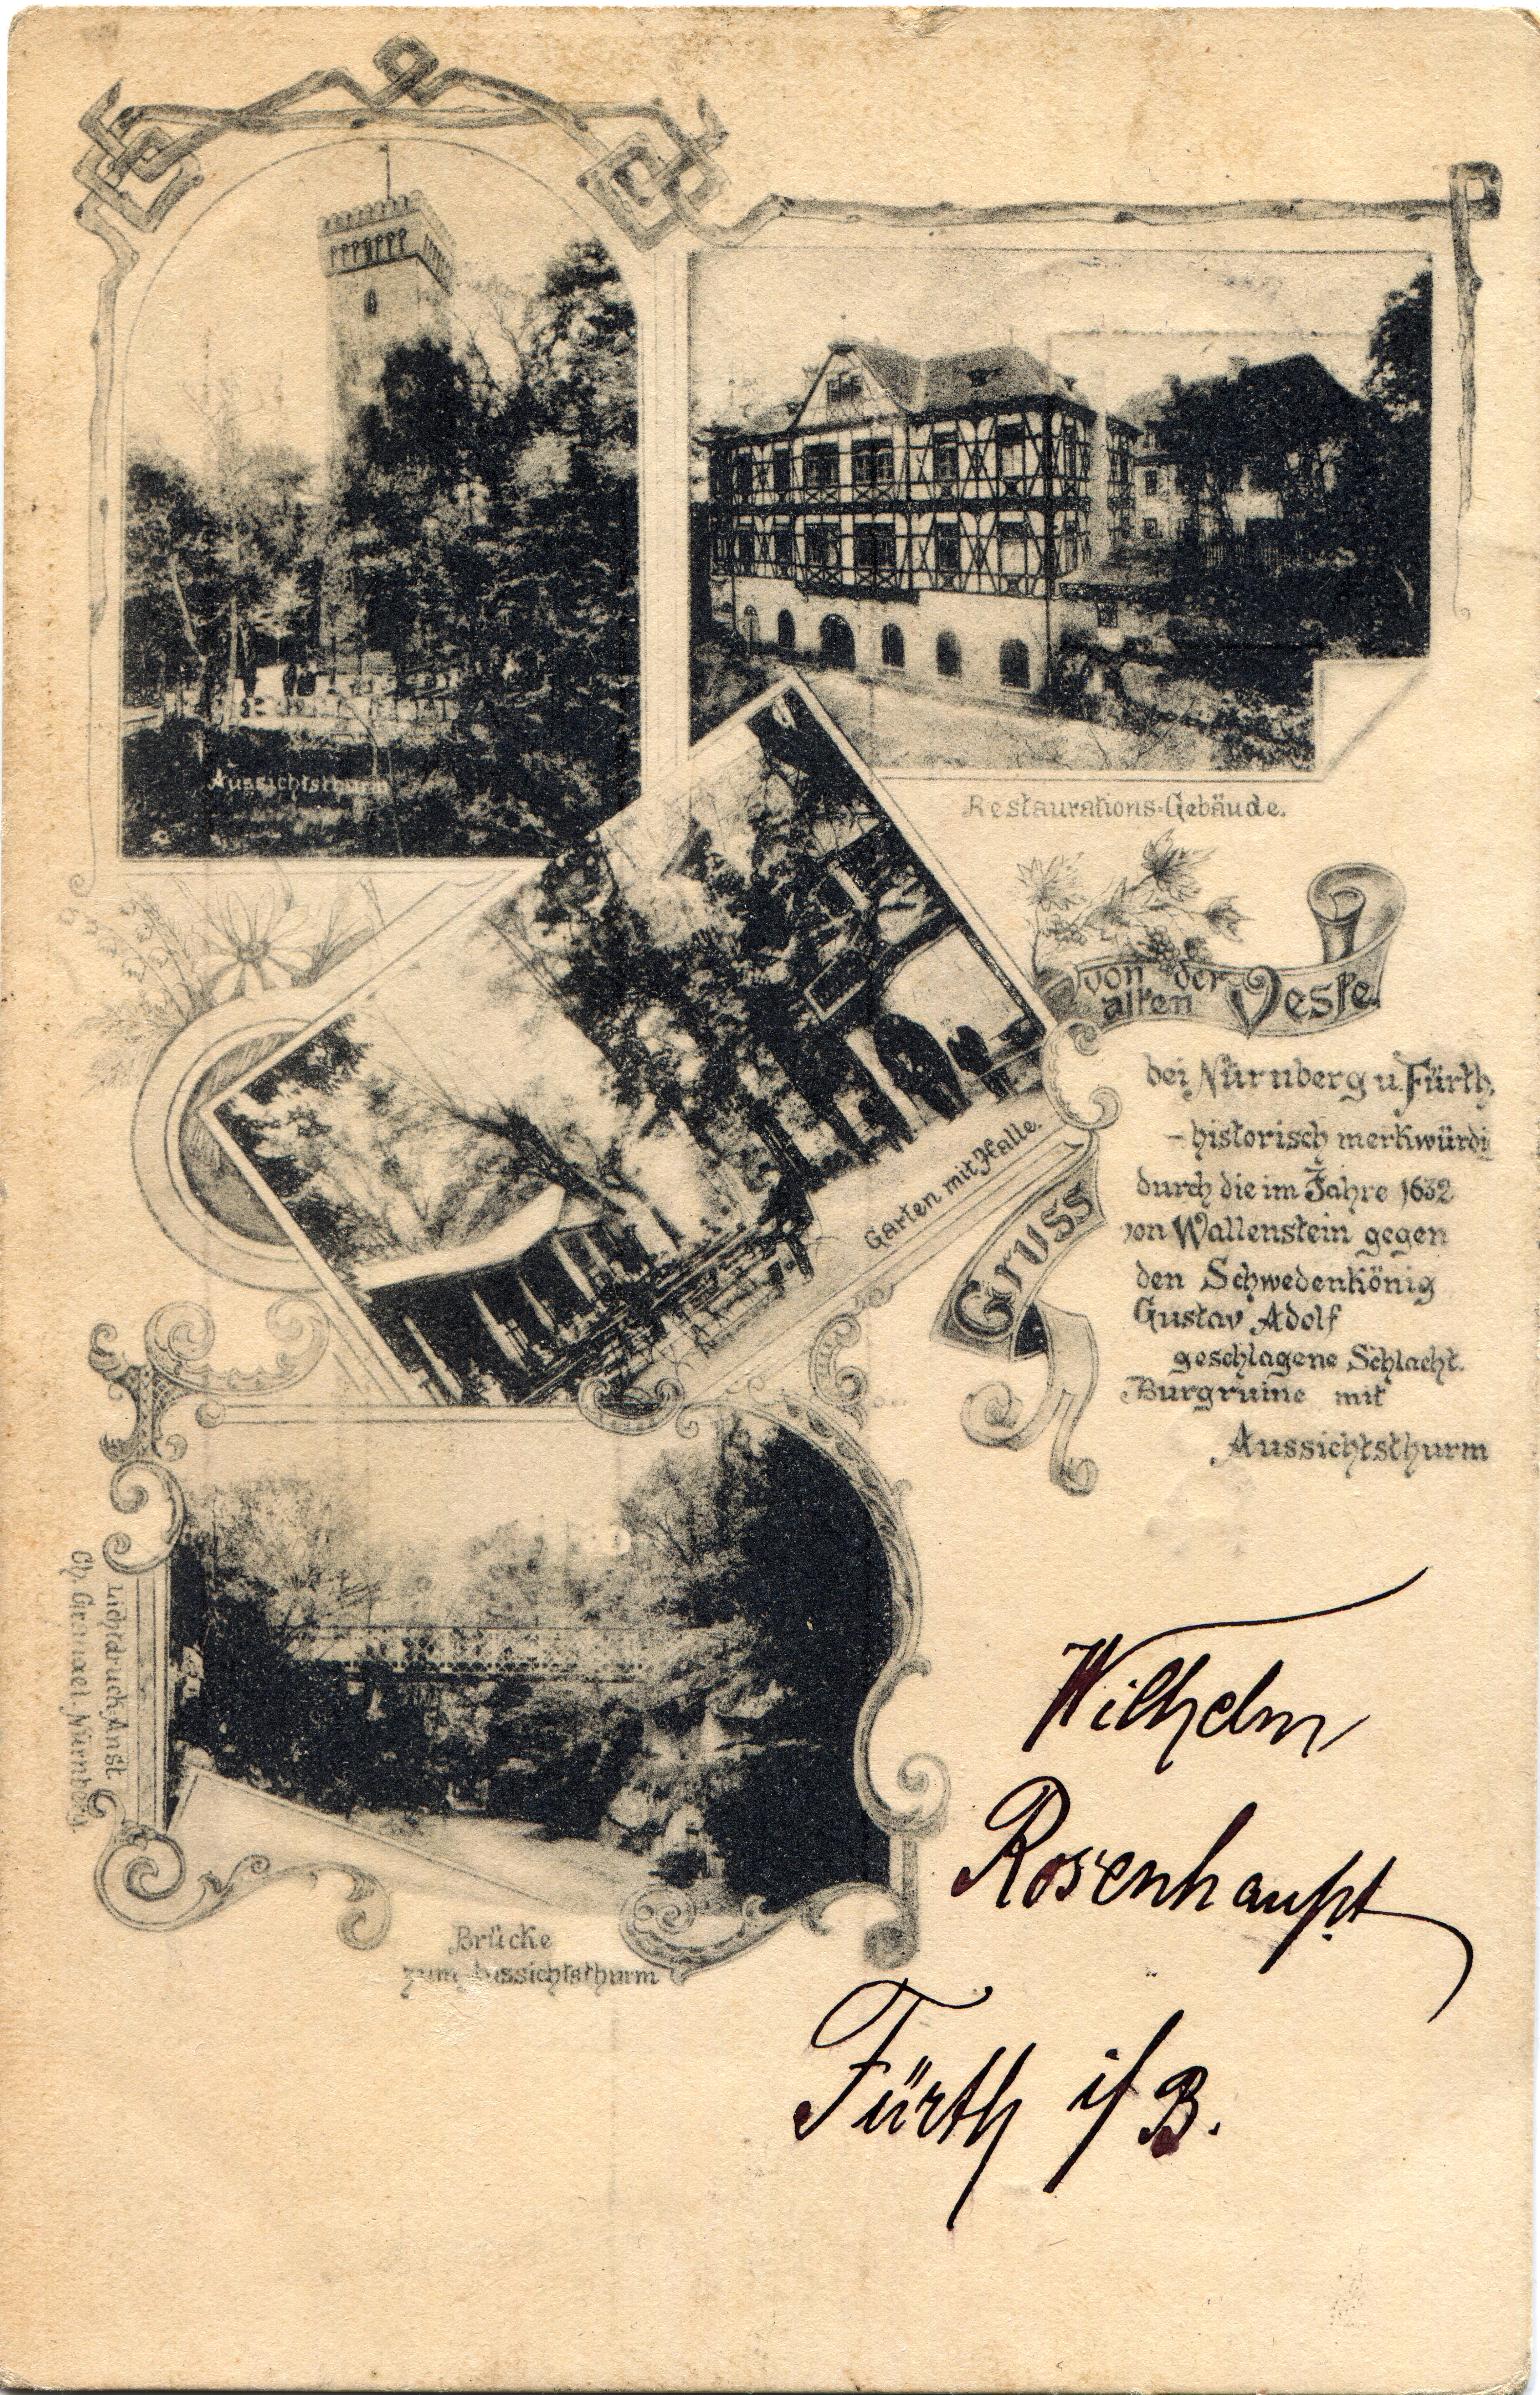 Aussichtsthurm
Restaurations-Gebäude.
Gruss
von der
alten Veste.
bei Nürnberg u. Fürth.
- historisch merkwürdi
durch die im Jahre 1632
von Wallenstein gegen
den Schwedenkönig
Gustav Adolf
geschlagene Schlacht.
Burgruine mit
Aussichtsthurm
Garten mit Halle.
Brücke
zum Aussichtsthurm
Lichtdruck Anst.
Ch. Nürnberg.
Wilhelm
Rosenhaupt
Fürth i/B.